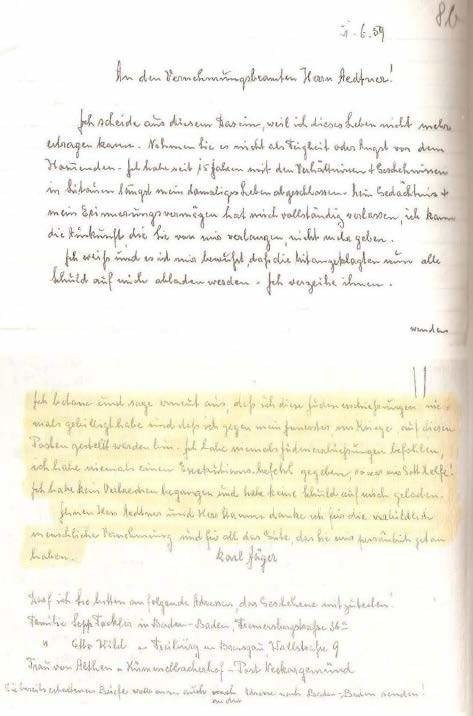 86
21.6.59
An den Vernehmungsbeamten Herrn Aedtner!
Ich scheide aus diesem Dasein, weil ich dieses Leben nicht mehr
ertragen kann. Nehmen Sie es nicht als Feigheit oder Angst vor dem
Kommenden. Ich habe seit 15 Jahren mit den Verhältnissen + Geschehnissen
in Litauen längst mein damaliges Leben abgeschlossen. Mein Gedächtnis +
mein Erinnerungsvermögen hat mich vollständig verlassen, ich kann
die Auskunft, die Sie von mir verlangen, nicht mehr geben.
Ich weiß und es ist mir bewußt, daß die Mitangeklagten nun alle
Schuld auf mich abladen werden. Ich verzeihe ihnen.
wenden
Ich betone und sage erneut aus, daß ich diese Judenerschießungen nie-
mals gebilligt habe und daß ich gegen mein Innerstes im Kriege auf diesen
Posten gestellt worden bin. Ich habe niemals Judenerschießungen befohlen,
ich habe niemals einen Exekutionsbefehl gegeben, so wahr mir Gott helfe!
Ich habe kein Verbrechen begangen und habe keine Schuld auf mich geladen.
Ihnen Herr Aedtner und Herr danke ich für die vorbildlich
menschliche Vernehmung und für all das Gute, das Sie mir persönlich getan
haben. Karl Jäger
Darf ich Sie bitten an folgende Adressen, das Geschehene mitzuteilen!
Familie Sepp in Baden-Baden,
" Otto Wild in Freiburg im Breisgau, Wallstraße 9
Frau von Althen Kümmelbacherhof - Post Neckargemünd
Die bereits erhaltenen Briefe wolle man auch an die Adresse nach Baden-Baden senden!